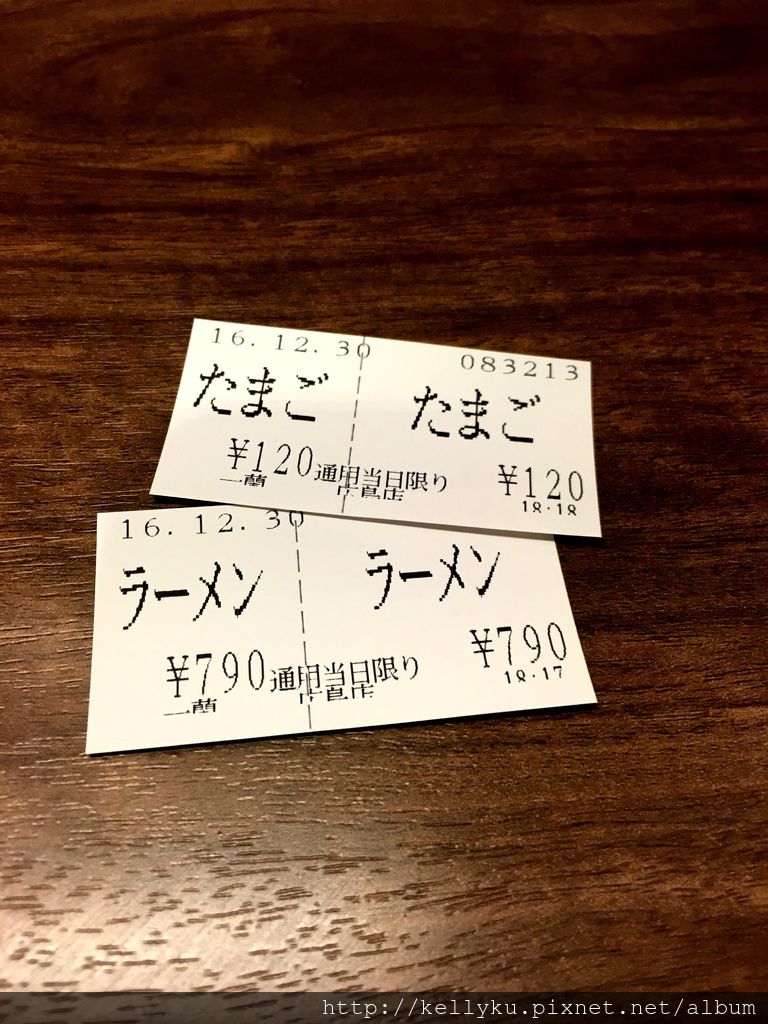 16.12.30 083213
たまご たまご
¥120 通用当日限り ¥120
一蘭 18:18
16.12.30
ラーメン ラーメン
¥790 通用当日限り ¥790
一蘭 18:17
http://kellyku.pixnet.net/album